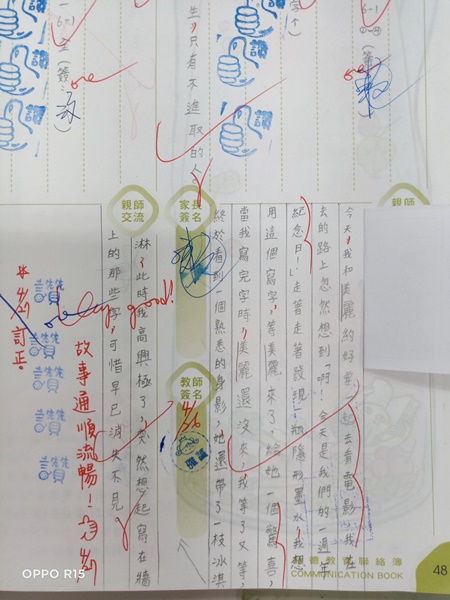 生，只有不進取的人。
6-1
讚
讚
讚
讚
讚
讚
親師
家長
簽名
親師
交流
今天，我和美麗約好要一起去看電影，我在
去的路上忽然想到「啊！今天是我們的一週年
紀念日！」走著走著發現一瓶隱形墨水，我想
用這個寫字，等美麗來了，給她一個驚喜，
當我寫完字時，美麗還沒來，我等了又等，
終於看到一個熟悉的身影，她還帶了一枝冰淇
淋，此時我高興極了，突然想起寫在牆
上的那些字，可惜早已消失不見。
教師
簽名
4/26
very good!
故事通順流暢！
4/27
*4/27訂正
讚
讚
讚
讚
聯絡簿
COMMUNICATION BOOK
48
OPPO R15